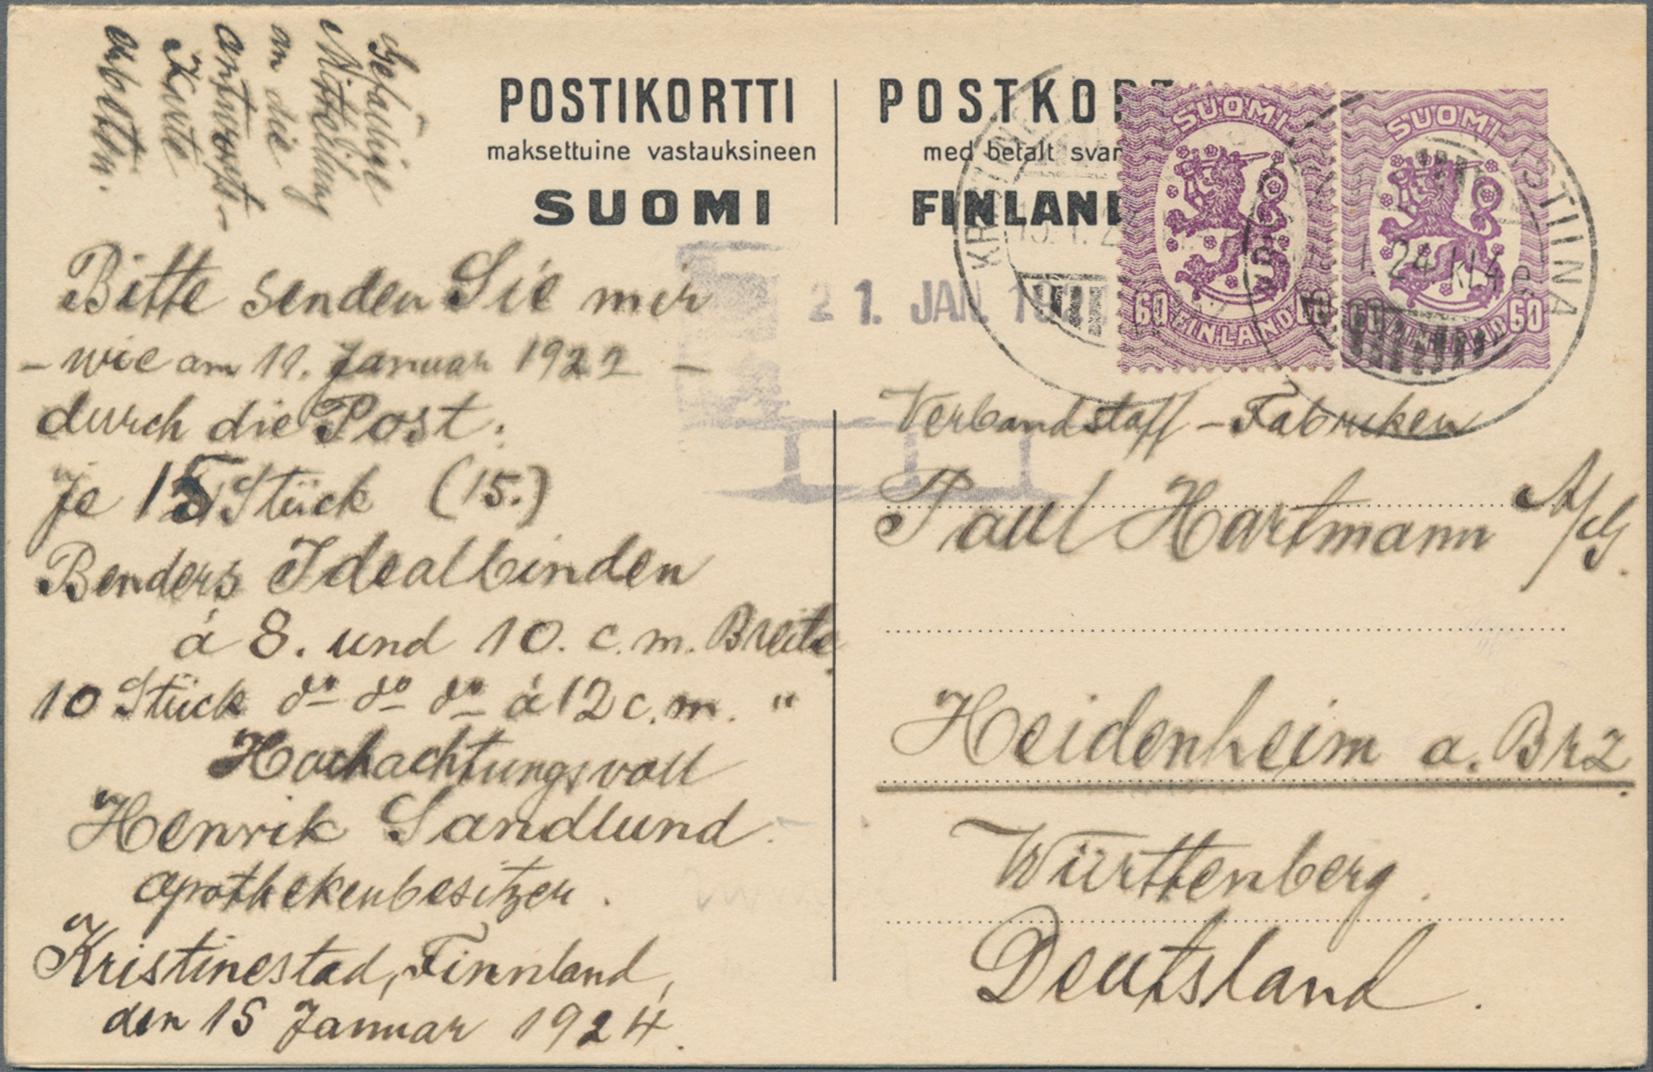 Gefällige
Mitteilung
an die
antworts-
Karte
erbetten.
POSTIKORTTI
maksettuine vastauksineen
SUOMI
POSTKORT
med betalt svar
FINLAND
SUOMI
60 FINLAND 60
SUOMI
60 FINLAND 60
21. JAN. 192
Bitte senden Sie mir
- wie am 11. Januar 1922 -
durch die Post:
je 15 Stück (15.)
Benders Idealbinden
á 8. und 10. c.m. Breite
10 Stück do do do á 12 c.m. "
Hochachtungsvoll
Henrik Sandlund
apothekenbesitzer.
Kristinestad, Finnland,
den 15 Januar 1924.
Verbandstoff-Fabriken
Paul Hartmann A/G.
Heidenheim a. Brz.
Württenberg.
Deutsland.